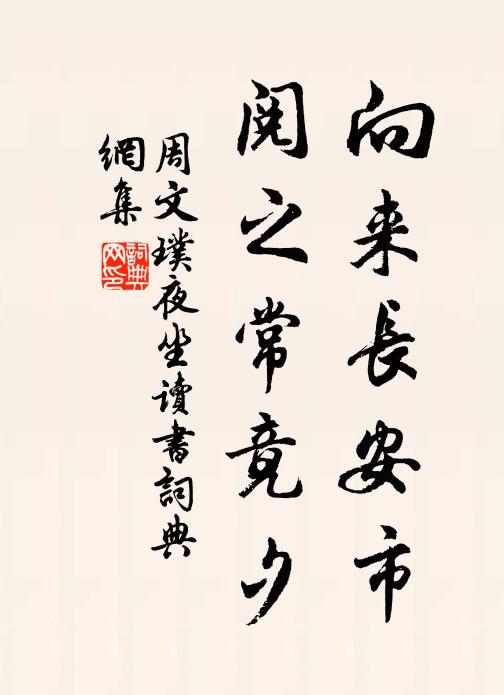 向来長安市
閱之常竟夕
周文璞夜坐讀書詞典
網集
詞典网印